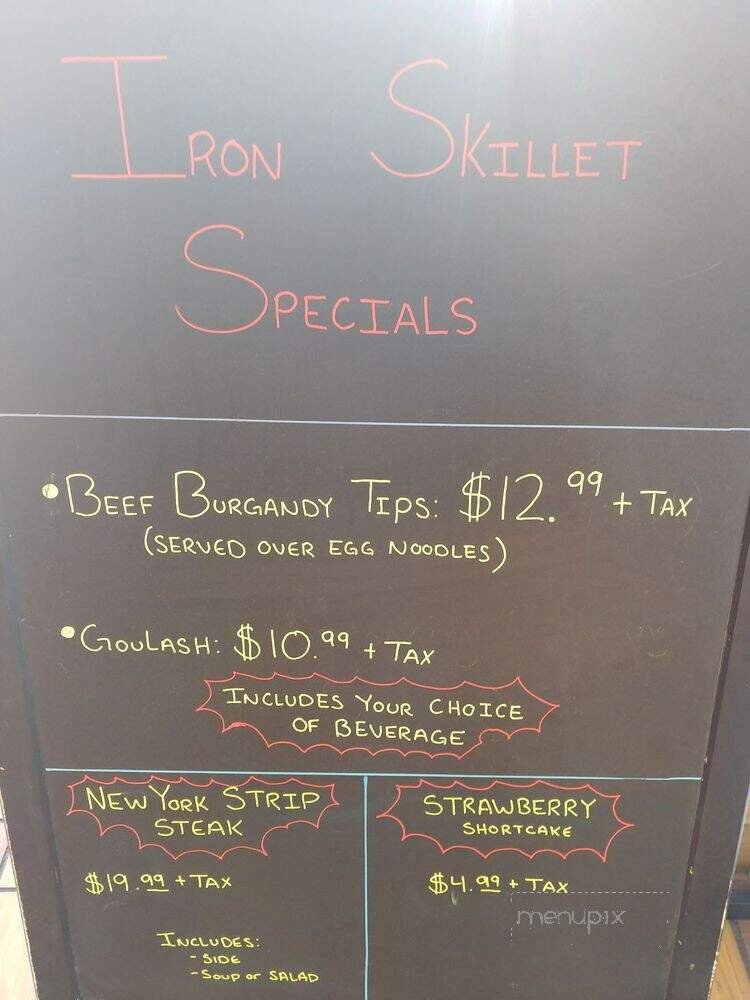 IRON SKILLET
SPECIALS
• BEEF BURGANDY TIPS: $12.99 + TAX
(SERVED OVER EGG NOODLES)
• GOULASH: $10.99 + TAX
INCLUDES YOUR CHOICE
OF BEVERAGE
NEW YORK STRIP
STEAK
$19.99 + TAX
INCLUDES:
- SIDE
- SOUP or SALAD
STRAWBERRY
SHORTCAKE
$4.99 + TAX
menupix